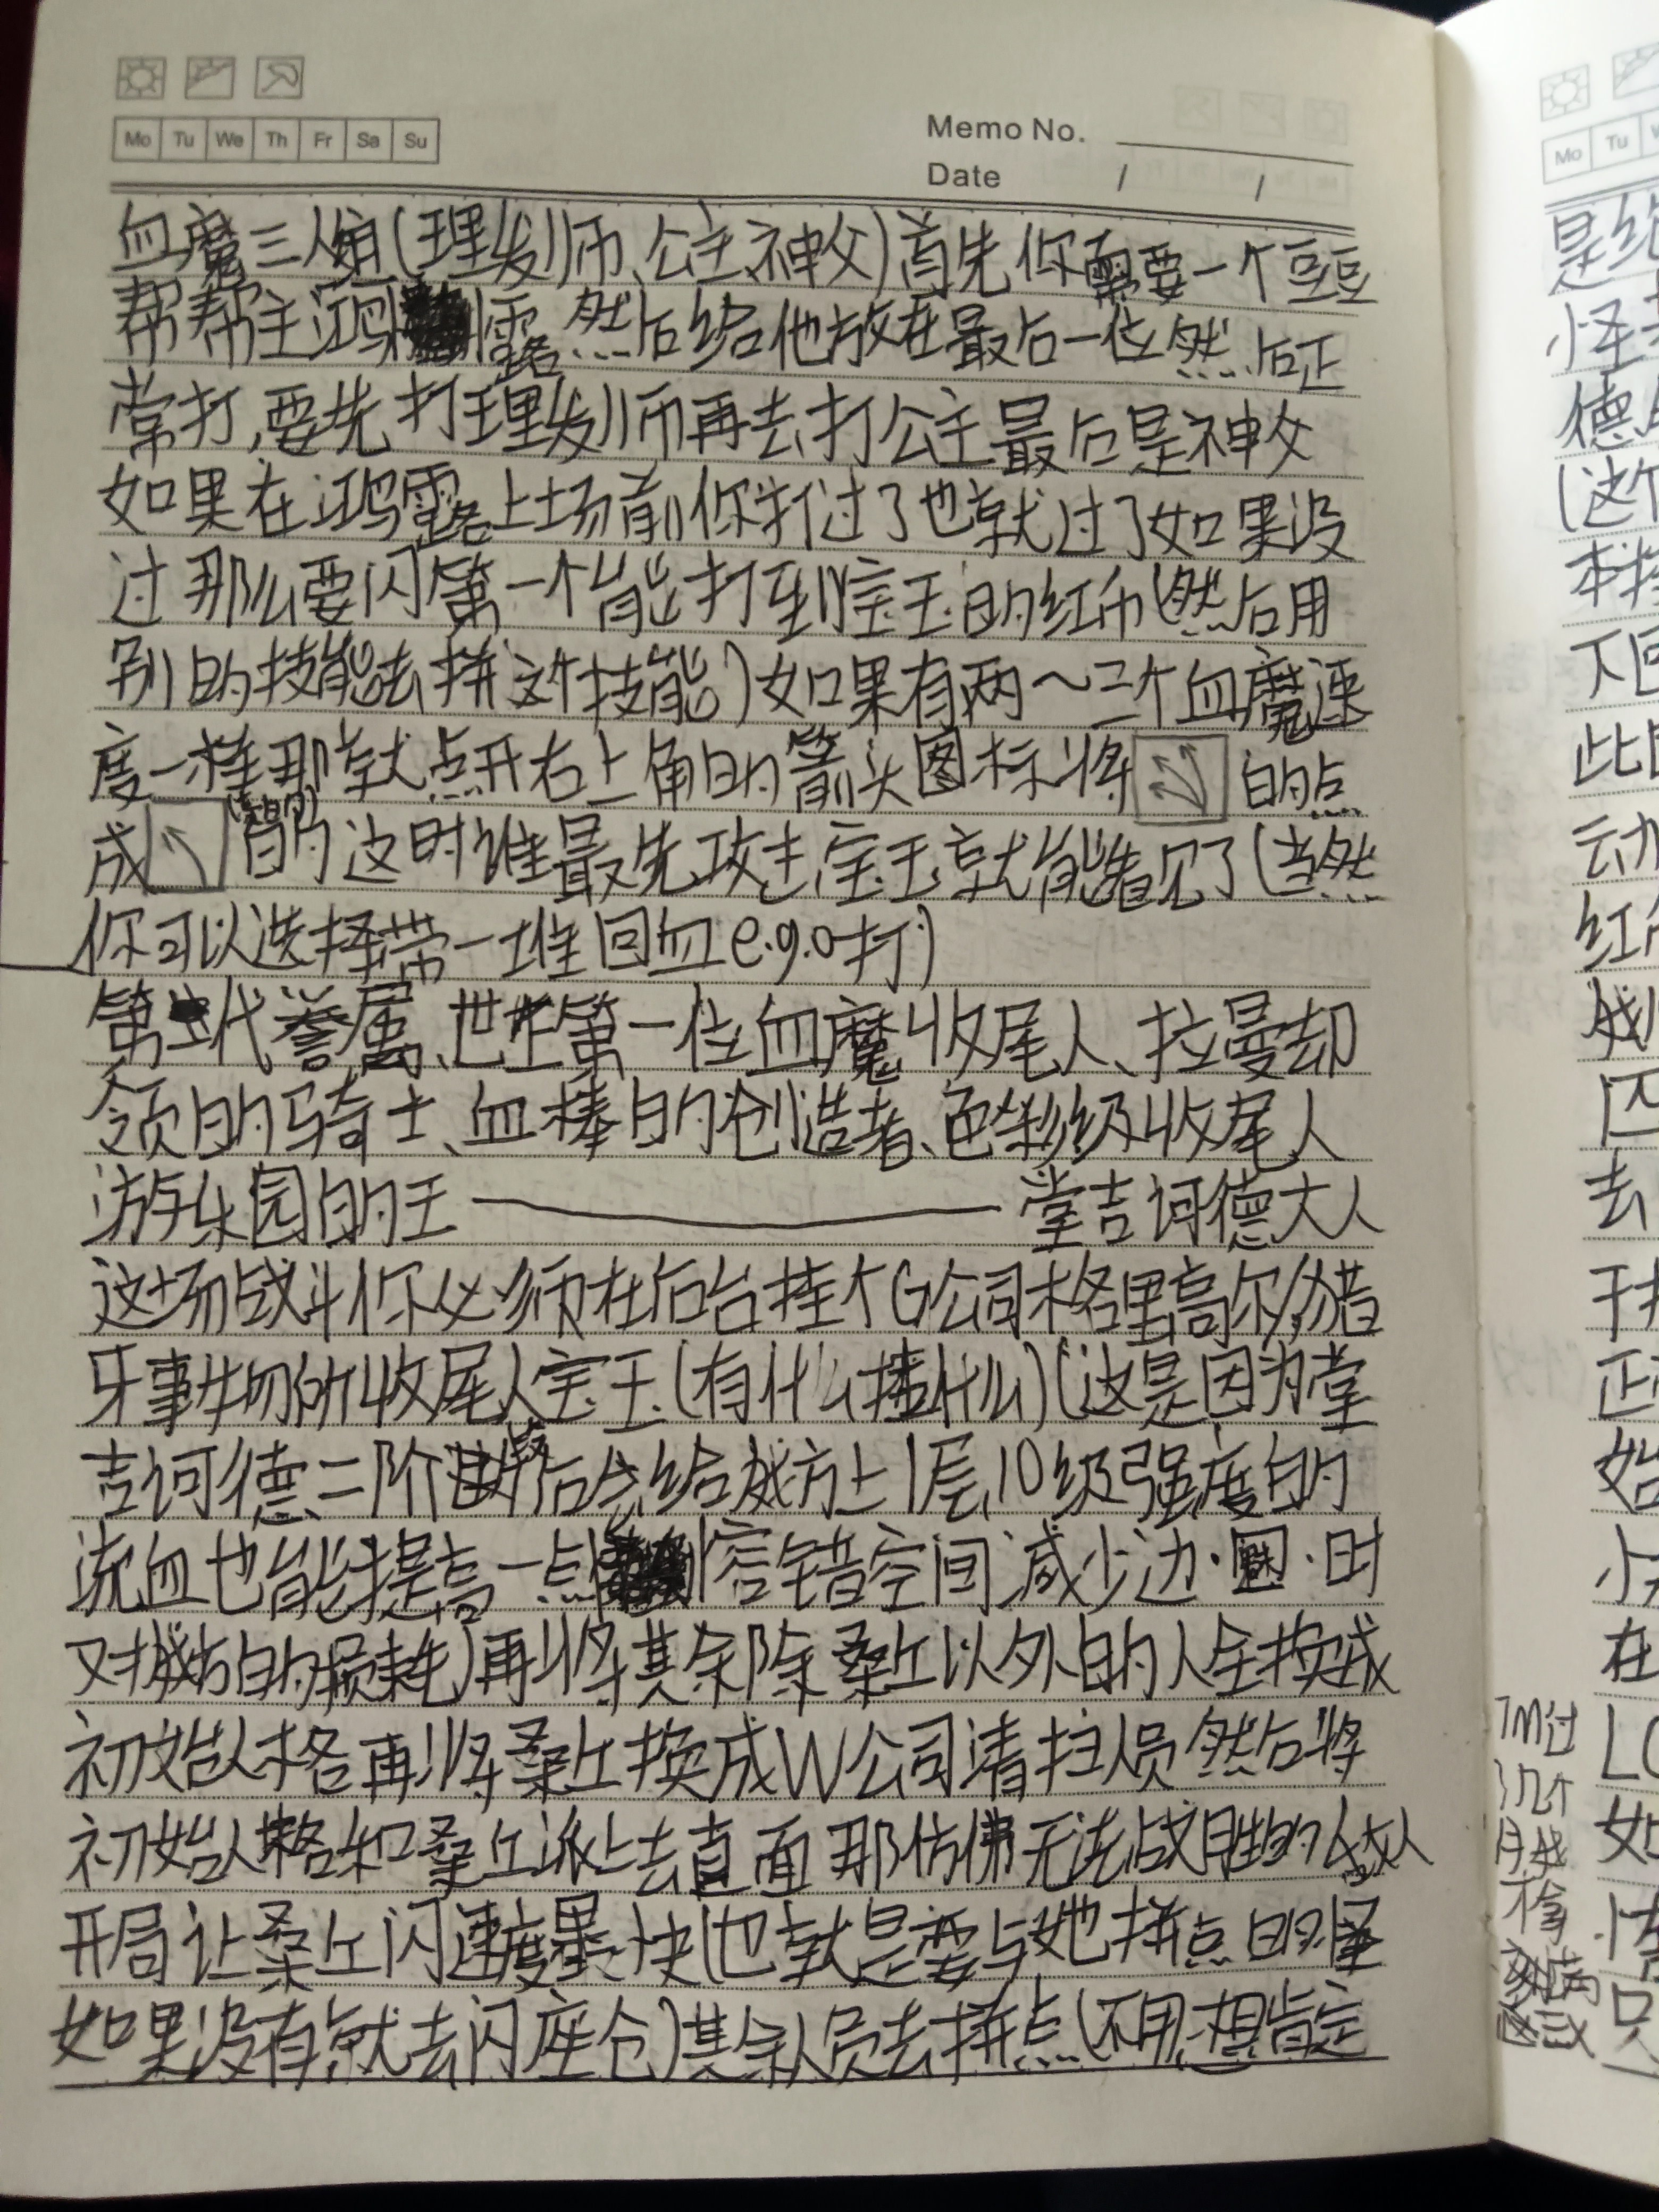 Mo Tu We Th Fr Sa Su
Memo No.
Date / /
血魔三人组(理发师、公主、神父)首先你需要一个豆豆
帮帮主鸿露然后给他放在最后一位然后正
常打,要先打理发师再去打公主最后是神父
如果在鸿露上场前你打过了也就过了如果没
过那么要闪第一个能打到宝玉的红币(然后用
别的技能去拼这个技能)如果有两~三个血魔速
度一样那就点开右上角的箭头图标将 的点
成 的这时谁最先攻击宝玉就能看见了(当然
你可以选择带一堆回血e.g.o打)
第二代眷属、世上第一位血魔收尾人、拉曼却
领的骑士、血棒的创造者、色彩级收尾人
游乐园的王 堂吉诃德大人
这场战斗你必须在后台挂个G公司格里高尔/猪
牙事物所收尾人宝玉(有什么挂什么)(这是因为堂
吉诃德二阶段后总给我方上1层10级强度的
流血也能提高一点容错空间减少边·困·时
对我方的损耗)再将其余除桑丘以外的人全换成
初始人格再将桑丘换成W公司清扫人员然后将
初始人格和桑丘派上去直面那仿佛无法战胜的
开局让桑丘闪速度最快(也就是要与她拼点的怪
如果没有就去闪座仓)其余人员去拼点(不用想肯定
Mo Tu
是给
怪
德
(这个
本
下回
此
云力
红
战
匹
去
干
正
始
小
在
LC
如
情
只